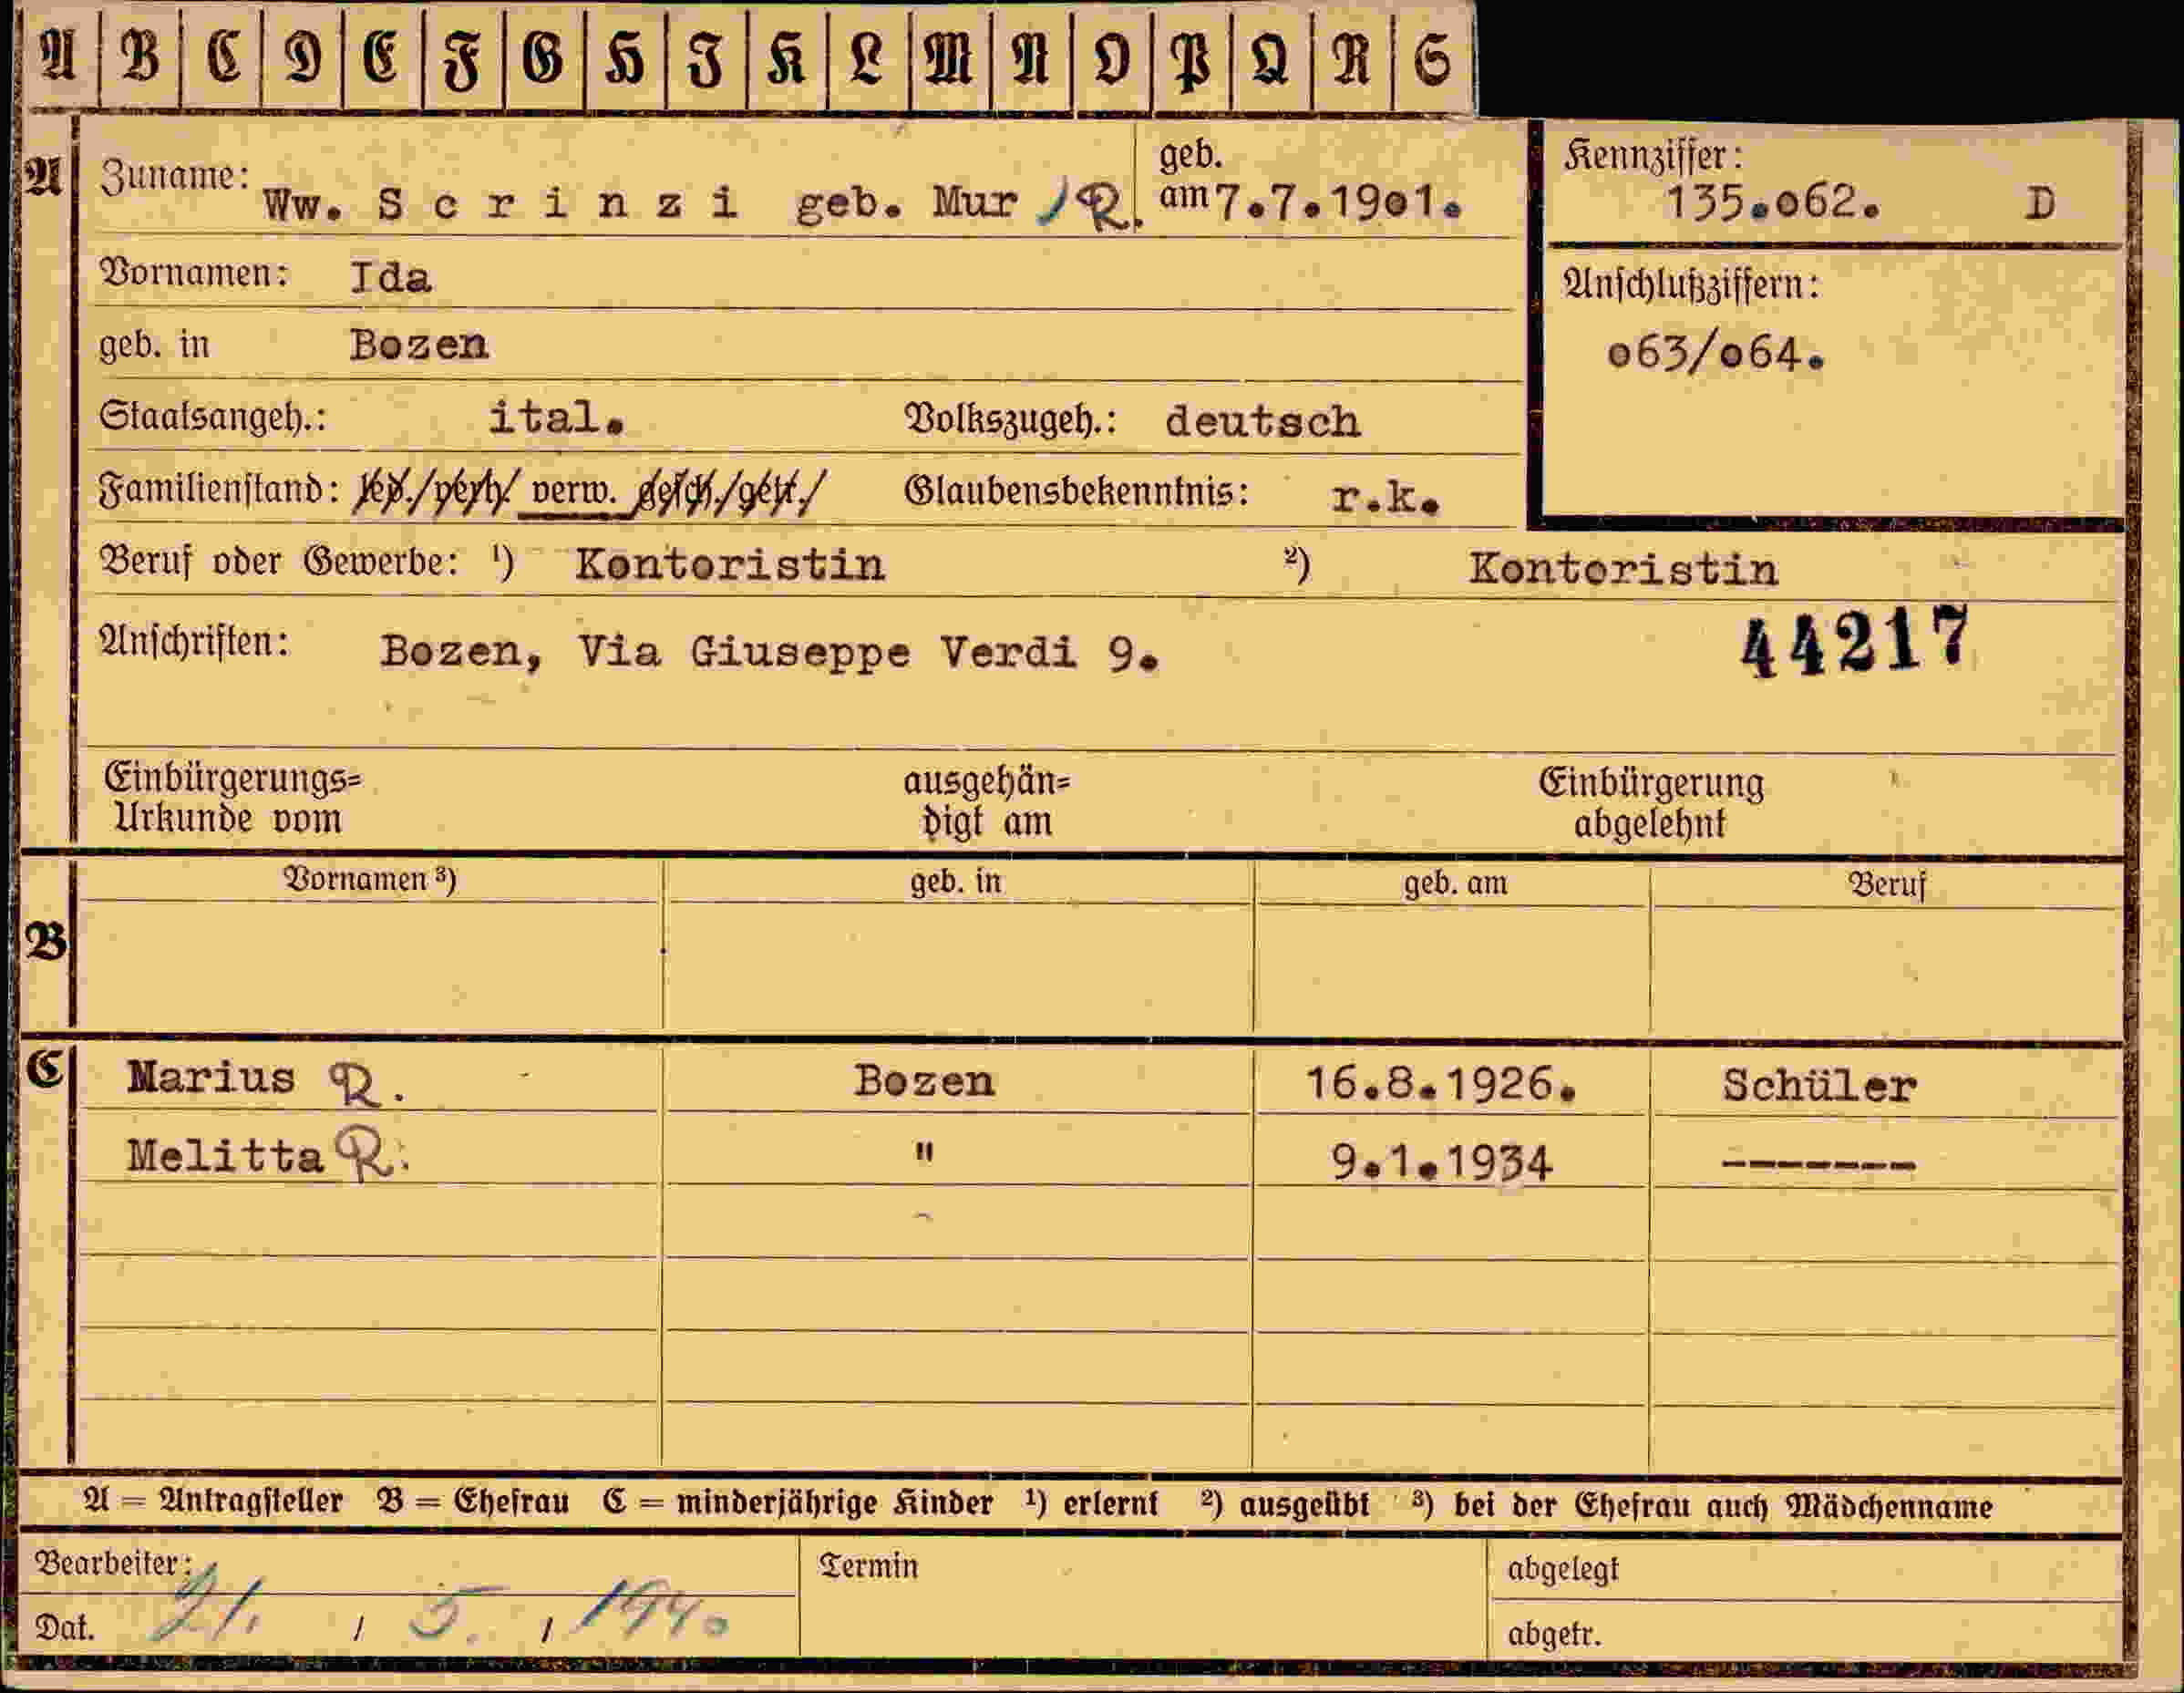 A B C D E F G H I K L M N O P Q R S
A Zuname: Ww. S c r i n z i geb. Mur / R. geb. am 7.7.19o1.
Kennziffer: 135.o62. D
Vornamen: Ida
Anschlußziffern: o63/o64.
geb. in Bozen
Staatsangeh.: ital. Volkszugeh.: deutsch
Familienstand: led./verh./ verw. gesch./getr./ Glaubensbekenntnis: r.k.
Beruf oder Gewerbe: ¹) Kontoristin ²) Kontoristin
Anschriften: Bozen, Via Giuseppe Verdi 9. 44217
Einbürgerungs= ausgehän= Einbürgerung
Urkunde vom digt am abgelehnt
Vornamen ³) geb. in geb. am Beruf
B
C Marius R. Bozen 16.8.1926. Schüler
Melitta R. " 9.1.1934 --------
A = Antragsteller B = Ehefrau C = minderjährige Kinder ¹) erlernt ²) ausgeübt ³) bei der Ehefrau auch Mädchenname
Bearbeiter: Termin abgelegt
Dat. 21. / 5. / 1940 abgetr.